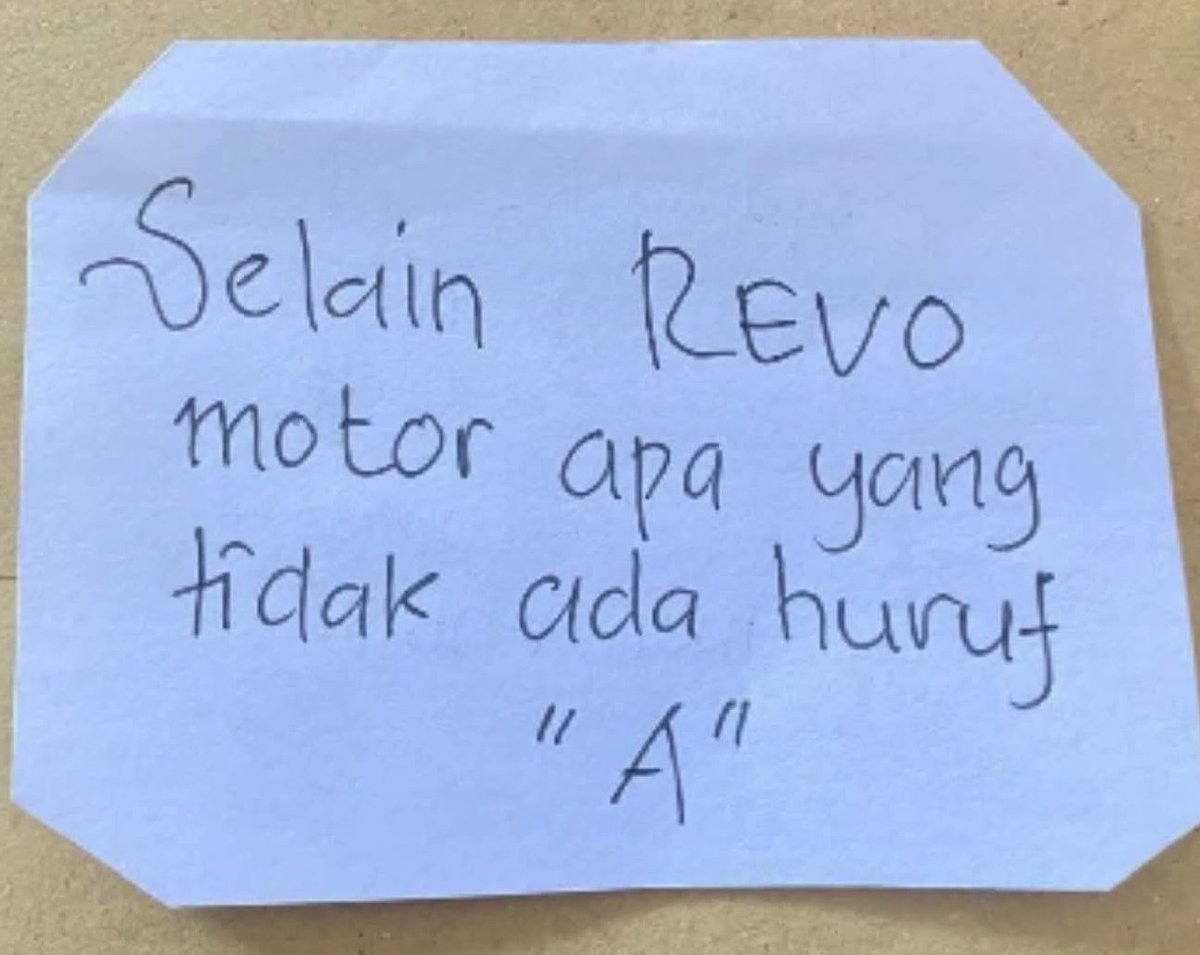 Selain REVO
motor apa yang
tidak ada huruf
"A"